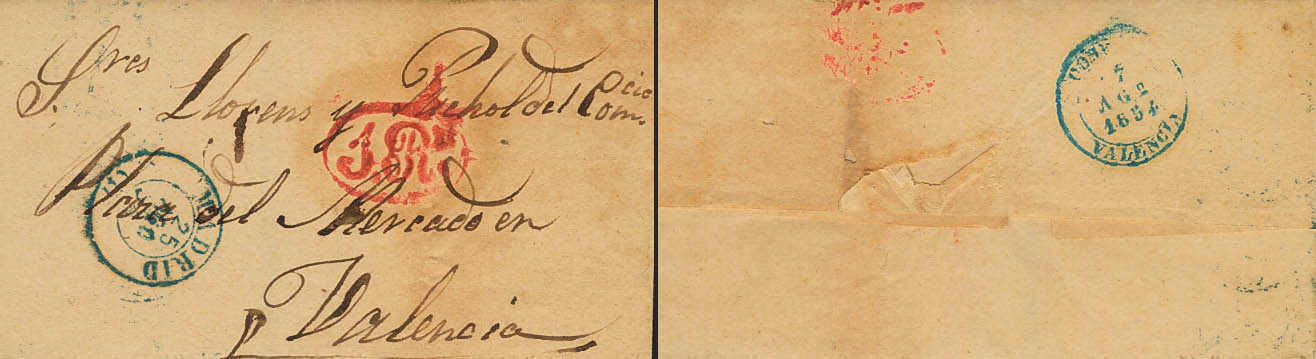 Sres Llorens y Puchol del Comcio
Plaza del Mercado en
Valencia
1 Rn
MADRID
25
7
AG
1854
VALENCIA